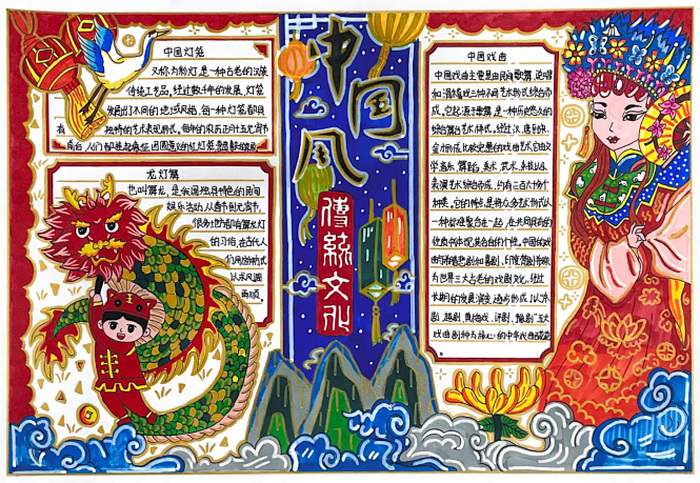 中国灯笼
又称为彩灯,是一种古老的汉族
传统工艺品,经过数千年的发展,灯笼
发展出了不同的地域风格,每一种灯笼都具
有独特的艺术表现形式。每年的农历正月十五元宵节
前后,人们都
龙灯舞
也叫舞龙,是我国独具特色的民间
娱乐活动,从春节到元宵节,
很多地方都有舞龙灯
的习俗,在古代人
们用这种方式
以求风调
雨顺
中国风
傳統文化
中国戏曲
中国戏曲主要是由民间歌舞、说唱
和滑稽戏三种不同艺术形式综合而
成。它起源于歌舞,是一种历史悠久的
综合舞台艺术样式。经过汉、唐到宋、
金才形成比较完整的戏曲艺术,它由文
学、音乐、舞蹈、美术、武术、杂技以及
表演艺术综合而成,约有三百六十多个
种类。它的特点是将众多艺术形式以
一种标准聚合在一起,在共同具有的
性质中体现其各自的个性。中国的戏
曲与希腊悲剧和喜剧、印度梵剧并称
为世界三大古老的戏剧文化,经过
长期的发展演变,逐步形成了以京
剧、越剧、黄梅戏、评剧、豫剧五大
戏曲剧种为核心的中华戏曲百花苑